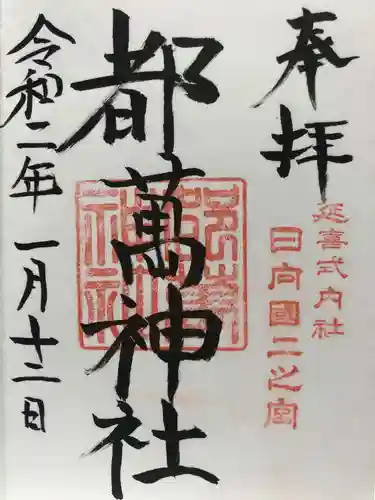 奉拝
延喜式内社
日向國二之宮
都萬神社
令和二年一月十二日